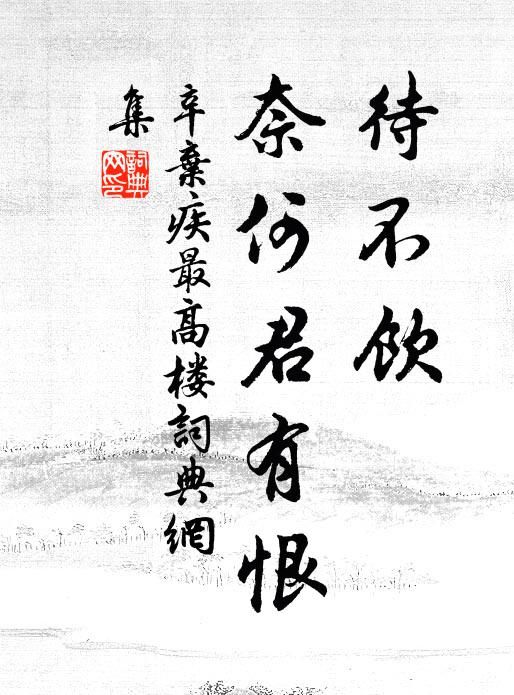 待不饮
奈何君有恨
辛棄疾最高楼詞典網
集
詞典
网印